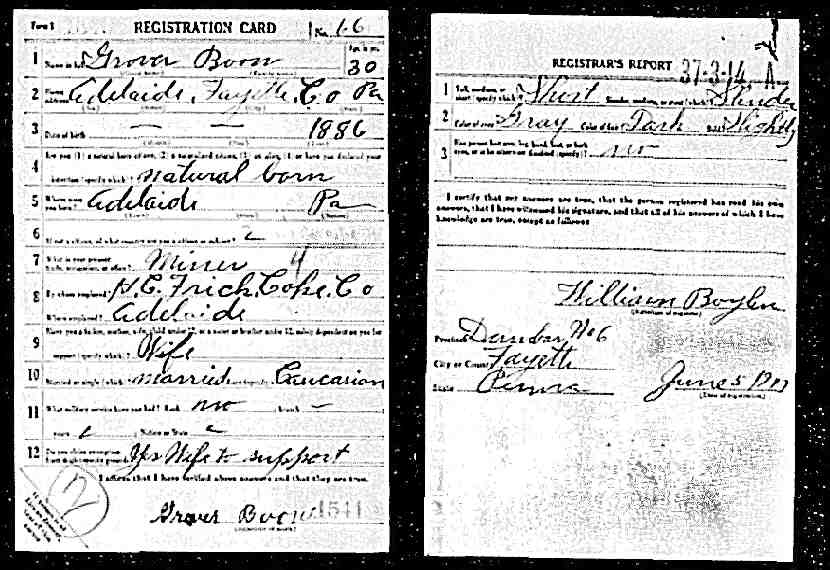 Form 1 REGISTRATION CARD No. 66
Age, in yrs.
1 Name in full Grover Boom 30
2 Home address Adelaide, Fayette Co Pa
3 Date of birth — — 1886
4 Are you (1) a natural born citizen, (2) a naturalized citizen, (3) an alien, (4) or have you declared your
intention (specify which)? natural born
5 Where were you born? Adelaide Pa
6 If not a citizen, of what country are you a citizen or subject?
7 What is your present trade, occupation, or office? Miner 4
8 By whom employed? H. C. Frick, Coke, Co
Where employed? Adelaide
9 Have you a father, mother, wife, child under 12, or a sister or brother under 12, solely dependent on you for
support (specify which)? Wife
10 Married or single (which)? married Race (specify which)? Caucasian
11 What military service have you had? Rank no branch —
years Nation or State
12 Do you claim exemption from draft (specify grounds)? Yes Wife to support
I affirm that I have verified above answers and that they are true.
Grover Boom 1511
(Signature or mark)
REGISTRAR'S REPORT 37-3-14 A
1 Tall, medium, or short (specify which)? Short Slender, medium, or stout (which)? Slender
2 Color of eyes? Gray Color of hair? Dark Bald? Slightly
3 Has person lost arm, leg, hand, foot, or both eyes, or is he otherwise disabled (specify)? no
I certify that my answers are true, that the person registered has read his own
answers, that I have witnessed his signature, and that all of his answers of which I have
knowledge are true, except as follows:
William Boylen
(Signature of registrar)
Precinct Dunbar No 6
City or County Fayette
State Penna June 5 1917
(Date of registration)